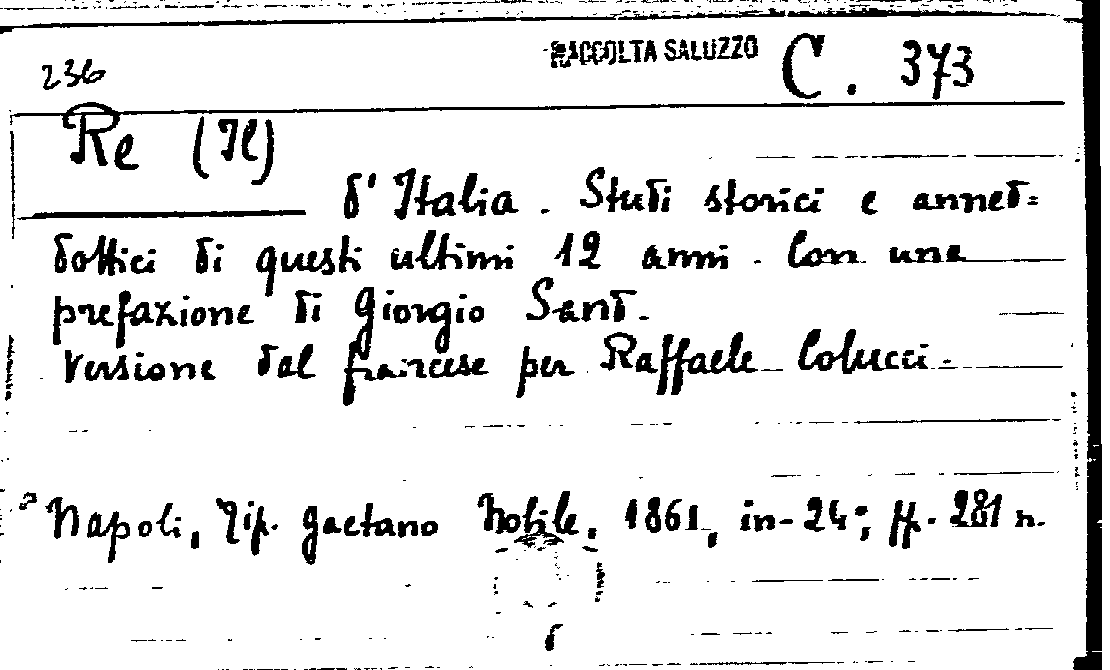 236
RACCOLTA SALUZZO C. 373
Re (Il)
d'Italia. Studi storici e anned=
dottici di questi ultimi 12 anni. Con una
prefazione di Giorgio Sand.
Versione dal francese per Raffaele Colucci.
Napoli, Tip. Gaetano Nobile, 1861, in-24°; pp. 281 n.